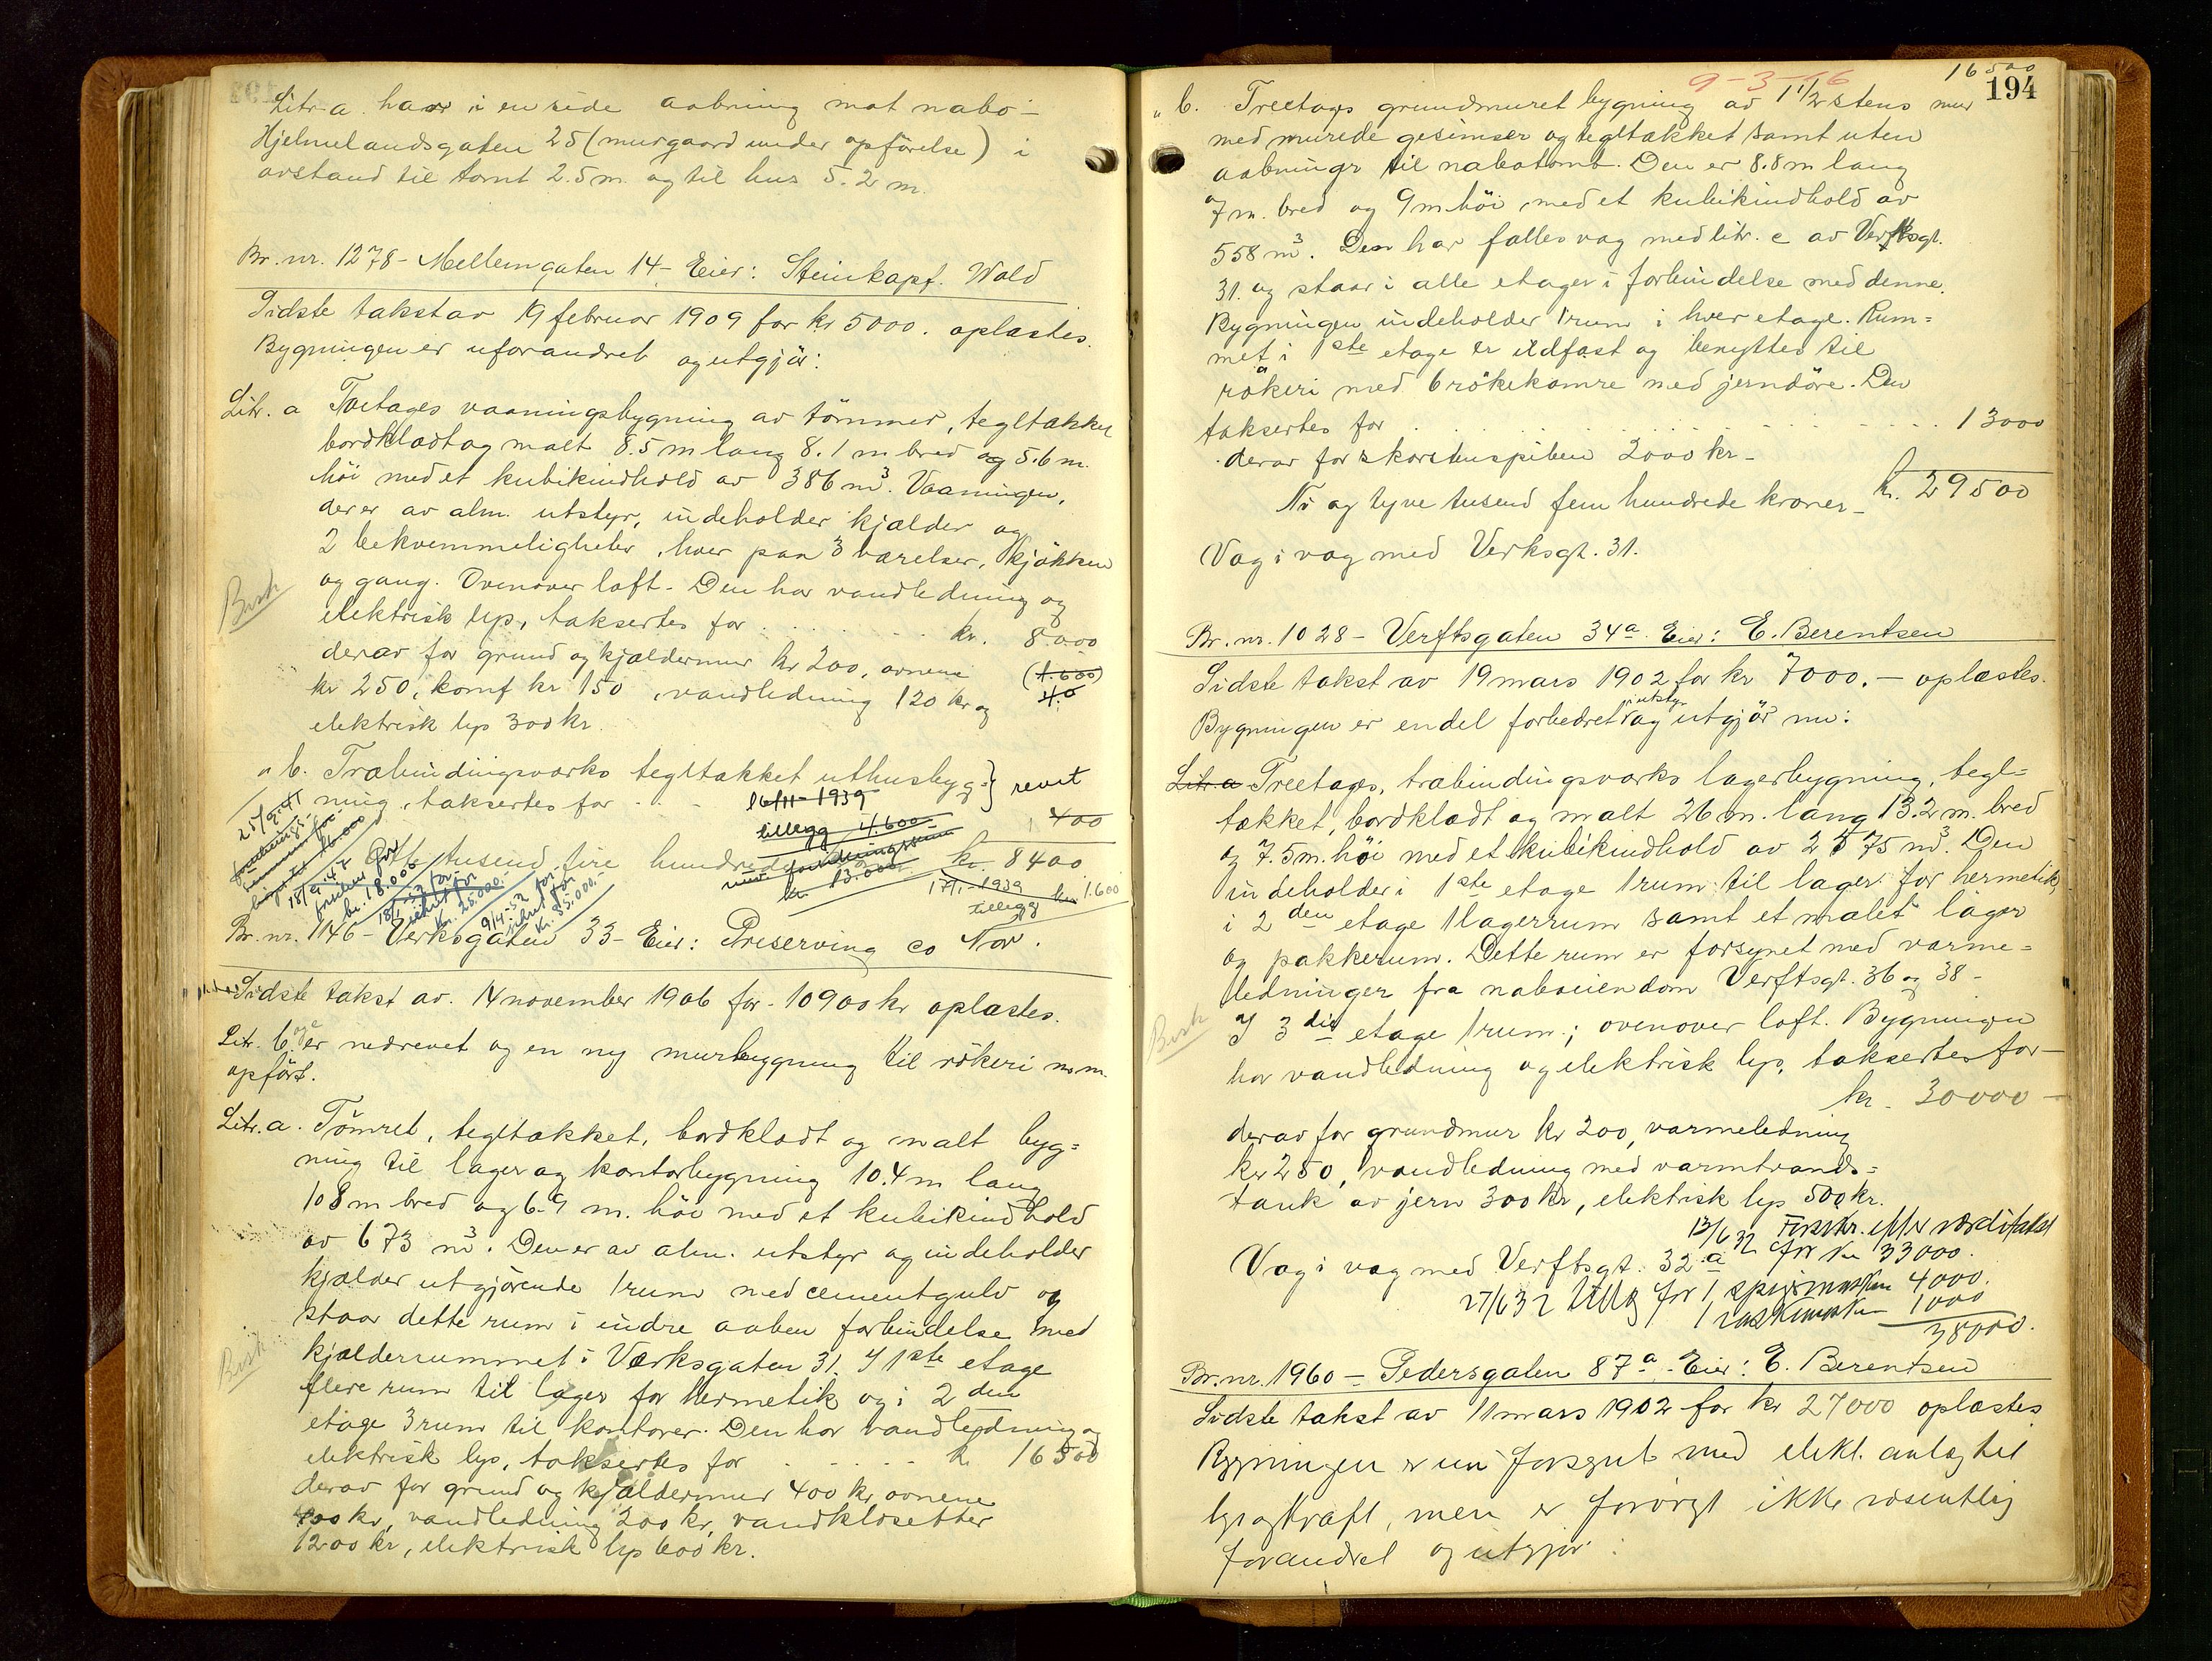 Litr. a. har i en side aabning mot nabo-
Hjelmelandsgaten 25 (murgaard under opförelse) i
avstand til tomt 2.5 m. og til hus 5.2 m.
Br. nr. 1278 - Mellemgaten 14 - Eier: Steinkopf. Wold
Sidste takst av 19 februar 1909 for kr 5000. oplæstes.
Bygningen er uforandret og utgjör:
Litr. a Toetages vaaningsbygning av tömmer, tegltækket
bordklædt og malt 8.5 m lang 8.1 m bred og 5.6 m.
höi med et kubikindhold av 386 m³. Vaaningen,
der er av alm. utstyr, indeholder kjælder og
2 bekvemmeligheter, hver paa 3 værelser, kjökken
og gang. Ovenover loft. Den har vandledning og
elektrisk lys, taksertes for . . . . kr. 8000
derav for grund og kjældermur kr 200, ovnene (4.600)
kr 250, komf kr 150, vandledning 120 kr og
elektrisk lys 300 kr.
" b. Træbindingsværks tegltækket uthusbyg- } revet
ning, taksertes for . . . 400
16/11-1939
tillegg 4.600
Otte tusend fire hundrede kr. 8400
kr. 13.000
17/1-1939 tillegg kr. 1.600
25/9-41
18/9-47 for
kr. 18.000
18/1-52 for
kr. 25.000.-
9/4-52 for
kr. 35.000.-
Br. nr. 1146 - Verksgaten 33 - Eier: Preserving co Nor.
Sidste takst av. 14 november 1906 for - 10900 kr oplæstes.
Litr. b og c er nedrevet og en ny murbygning til rökeri m.m.
opfört.
Litr. a. Tömret, tegltækket, bordklædt og malt byg=
ning til lager og kontorbygning 10.4 m lang
10 8 m bred og 6.9 m. höi med et kubikindhold
av 673 m³. Den er av alm. utstyr og indeholder
kjælder utgjörende 1 rum med cementgulv og
staar dette rum i indre aaben forbindelse med
kjælderrummet i Værksgaten 31. I 1ste etage
flere rum til lager for hermetik og i 2den
etage 3 rum til kontorer. Den har vandledning og
elektrisk lys, taksertes for . . . . . kr. 16500
derav for grund og kjældermur 400 kr, ovnene
400 kr, vandledning 200 kr, vandklosetter
1200 kr, elektrisk lys 600 kr.
9-3-16
16500
194
" b. Treetages grundmuret bygning av 1 1/2 stens mur
med murede gesimser og tegltækket samt uten
aabninger til nabotomt. Den er 8.8 m lang
7 m. bred og 9 m höi med et kubikindhold av
558 m³. Den har fælles væg med litr. c av Verksgt.
31. og staar i alle etager i forbindelse med denne.
Bygningen indeholder 1 rum i hver etage. Rum=
met i 1ste etage er ildfast og benyttes til
rökeri med 6 rökekamre med jerndöre. Den
taksertes for . . . . . . . . . . 13000
derav for skorstenspiben 2000 kr -
Ni og tyve tusend fem hundrede kroner - kr. 29500
Væg i væg med Verksgt. 31.
Br. nr. 1028 - Verftsgaten 34a. Eier: E. Berentsen
Sidste takst av 19 mars 1902 for kr 7000. - oplæstes.
Bygningen er endel forbedret i utstyr og utgjör nu:
Litr. a Treetages, træbindingsværks lagerbygning, tegl=
tækket, bordklædt og malt 26 m. lang 13.2 m. bred
og 7.5 m. höi med et kubikindhold av 2575 m³. Den
indeholder i 1ste etage 1 rum til lager for hermetik,
i 2den etage 1 lagerrum samt et malet lager
og pakkerum. Dette rum er forsynet med varme=
ledninger fra naboeiendom Verftsgt. 36 og 38 -
I 3die etage 1 rum; ovenover loft. Bygningen
har vandledning og elektrisk lys, taksertes for -
kr. 30000 -
derav for grundmur kr 200, varmeledning
kr 250, vandledning med varmtvands=
tank av jern 300 kr, elektrisk lys 500 kr.
13/6 32 Forsikr. efter værditakst
Væg i væg med Verftsgt. 32.a for kr 33000.
27/6 32 Tillæg for 1 4000.
1 1000
38000.
Br. nr. 1960 - Pedersgaten 87a - Eier: E. Berentsen
Sidste takst av 11 mars 1902 for kr 27000 oplæstes
Bygningen er nu forsynt med elekt. anlæg til
lys og kraft, men er forövrigt ikke væsentlig
forandret og utgjör :